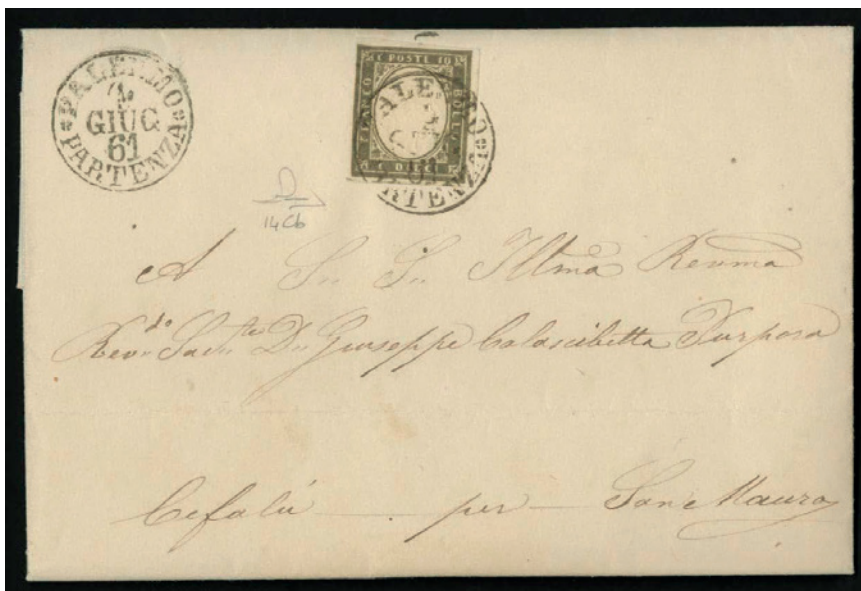 PALERMO
4
GIUG
61
PARTENZA
C. POSTE 10
FRANCO
BOLLO
C. DIECI 10
PALERMO
GIU
61
PARTENZA
14Cb
A S. S. Illma Revma
Revdo Sacte Dn Giuseppe Calascibetta Purpora
Cefalù per San Mauro